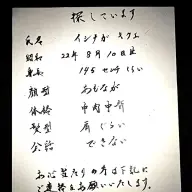 探しています
氏名 インチが キクエ
昭和 22年 8月10日生
身長 145 センチくらい
顔型 おもなが
体格 中肉中背
髪型 肩ぐらい
会話 できない
お心当たりの方は下記に
ご連絡をお願いいたします。